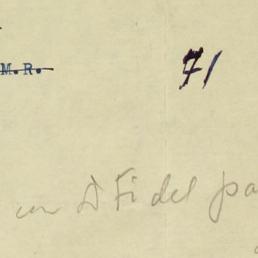 M. R.
71
con D Fidel pa